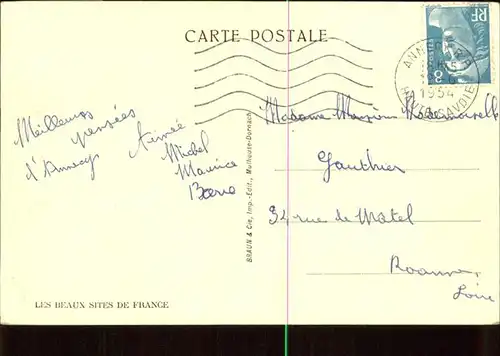 CARTE POSTALE
RF
POSTES
8F
1954
Hte SAVOIE
Meilleures
pensées
d'Annecy
Aimée
Michel
Maurice
BRAUN & Cie, Imp.-Edit., Mulhouse-Dornach
Madame Monsieur Mademoiselle
Gauthier
34 rue de Matel
Roanne
Loire
LES BEAUX SITES DE FRANCE